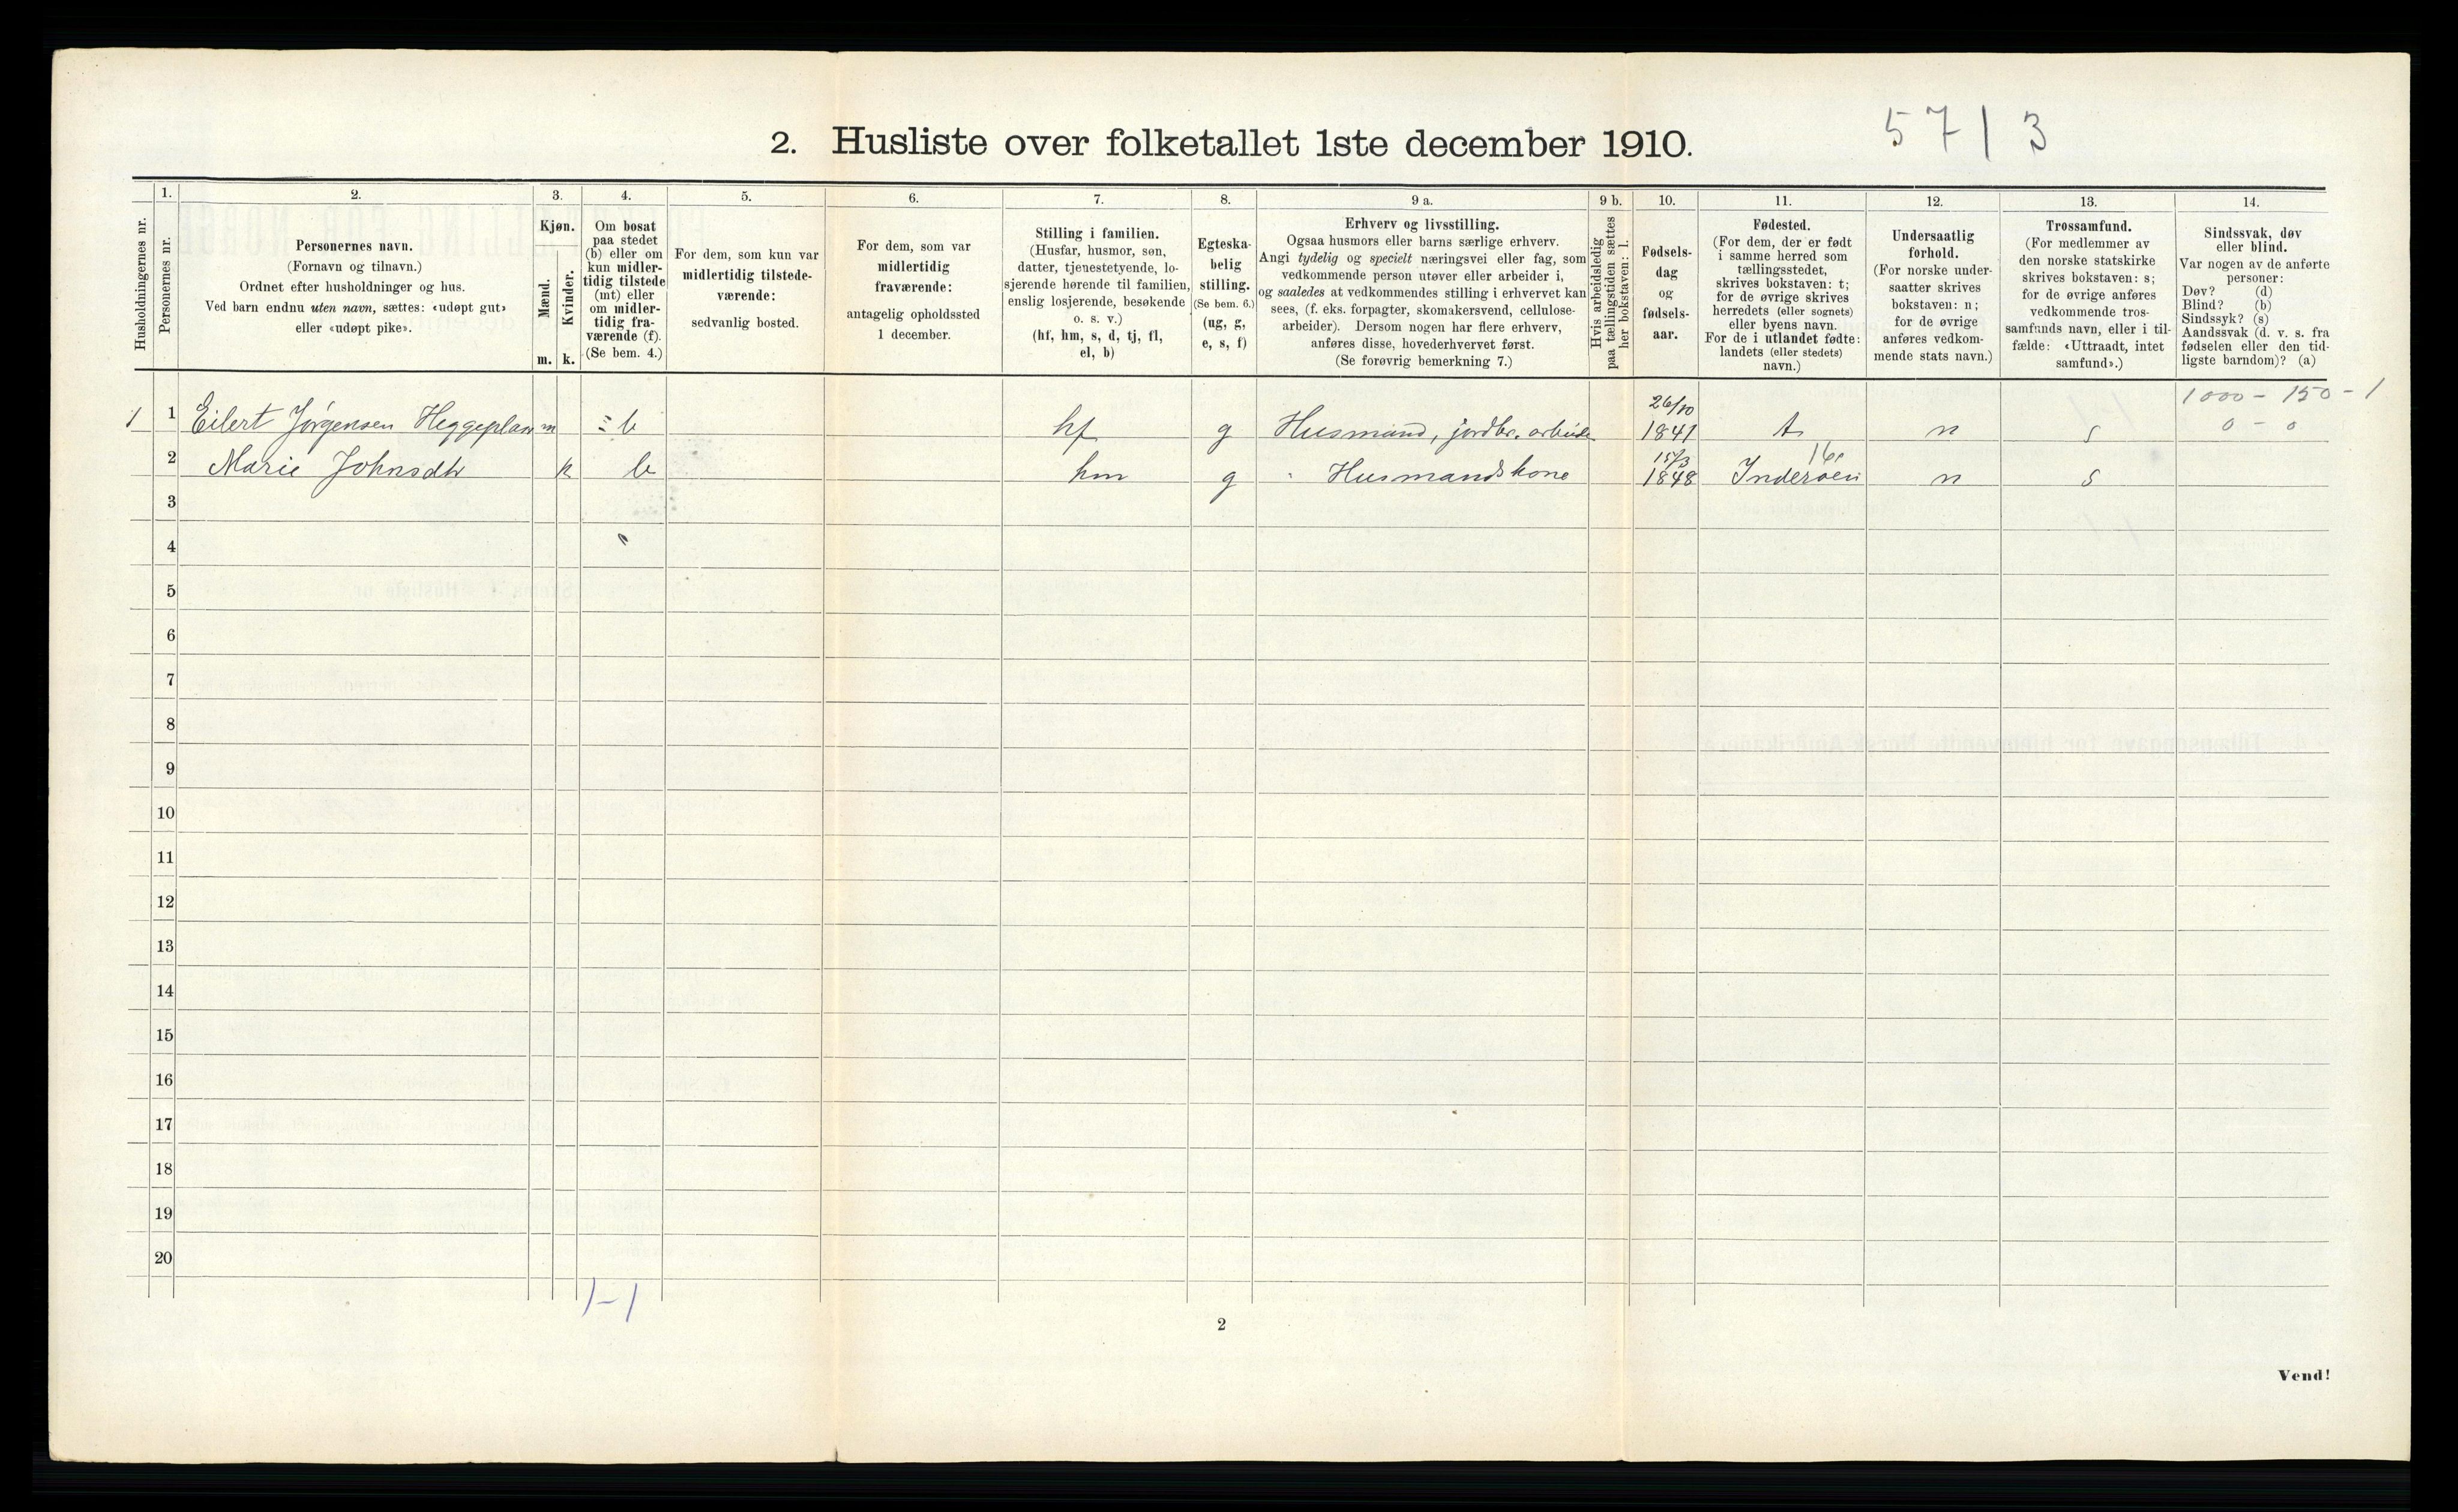 2. Husliste over folketallet 1ste december 1910.
57 | 3
Husholdningernes nr.
1.
Personernes nr.
2.
Personernes navn.
(Fornavn og tilnavn.)
Ordnet efter husholdninger og hus.
Ved barn endnu uten navn, sættes: «udøpt gut»
eller «udøpt pike».
3.
Kjøn.
Mænd.
Kvinder.
m. k.
4.
Om bosat
paa stedet
(b) eller om
kun midler-
tidig tilstede
(mt) eller
om midler-
tidig fra-
værende (f).
(Se bem. 4.)
5.
For dem, som kun var
midlertidig tilstede-
værende:
sedvanlig bosted.
6.
For dem, som var
midlertidig
fraværende:
antagelig opholdssted
1 december.
7.
Stilling i familien.
(Husfar, husmor, søn,
datter, tjenestetyende, lo-
sjerende hørende til familien,
enslig losjerende, besøkende
o. s. v.)
(hf, hm, s, d, tj, fl,
el, b)
8.
Egteska-
belig
stilling.
(Se bem. 6.)
(ug, g,
e, s, f)
9 a.
Erhverv og livsstilling.
Ogsaa husmors eller barns særlige erhverv.
Angi tydelig og specielt næringsvei eller fag, som
vedkommende person utøver eller arbeider i,
og saaledes at vedkommendes stilling i erhvervet kan
sees, (f. eks. forpagter, skomakersvend, cellulose-
arbeider). Dersom nogen har flere erhverv,
anføres disse, hovederhvervet først.
(Se forøvrig bemerkning 7.)
9 b.
Hvis arbeidsledig
paa tællingstiden sættes
her bokstaven: l.
10.
Fødsels-
dag
og
fødsels-
aar.
11.
Fødested.
(For dem, der er født
i samme herred som
tællingsstedet,
skrives bokstaven: t;
for de øvrige skrives
herredets (eller sognets)
eller byens navn.
For de i utlandet fødte:
landets (eller stedets)
navn.)
12.
Undersaatlig
forhold.
(For norske under-
saatter skrives
bokstaven: n;
for de øvrige
anføres vedkom-
mende stats navn.)
13.
Trossamfund.
(For medlemmer av
den norske statskirke
skrives bokstaven: s;
for de øvrige anføres
vedkommende tros-
samfunds navn, eller i til-
fælde: «Uttraadt, intet
samfund».)
14.
Sindssvak, døv
eller blind.
Var nogen av de anførte
personer:
Døv? (d)
Blind? (b)
Sindssyk? (s)
Aandssvak (d. v. s. fra
fødselen eller den tid-
ligste barndom)? (a)
1000 - 150 - 1
0 - 0
1 1 Eilert Jørgensen Heggeplan m b hf g Husmand, jordbr. arbeide 26/10 1841 t n s
2 Marie Johnsdtr k b hm g Husmandskone 15/3 1848 Inderøen 16 n s
3
4
5
6
7
8
9
10
11
12
13
14
15
16
17
18
19
20
1-1
2
Vend!